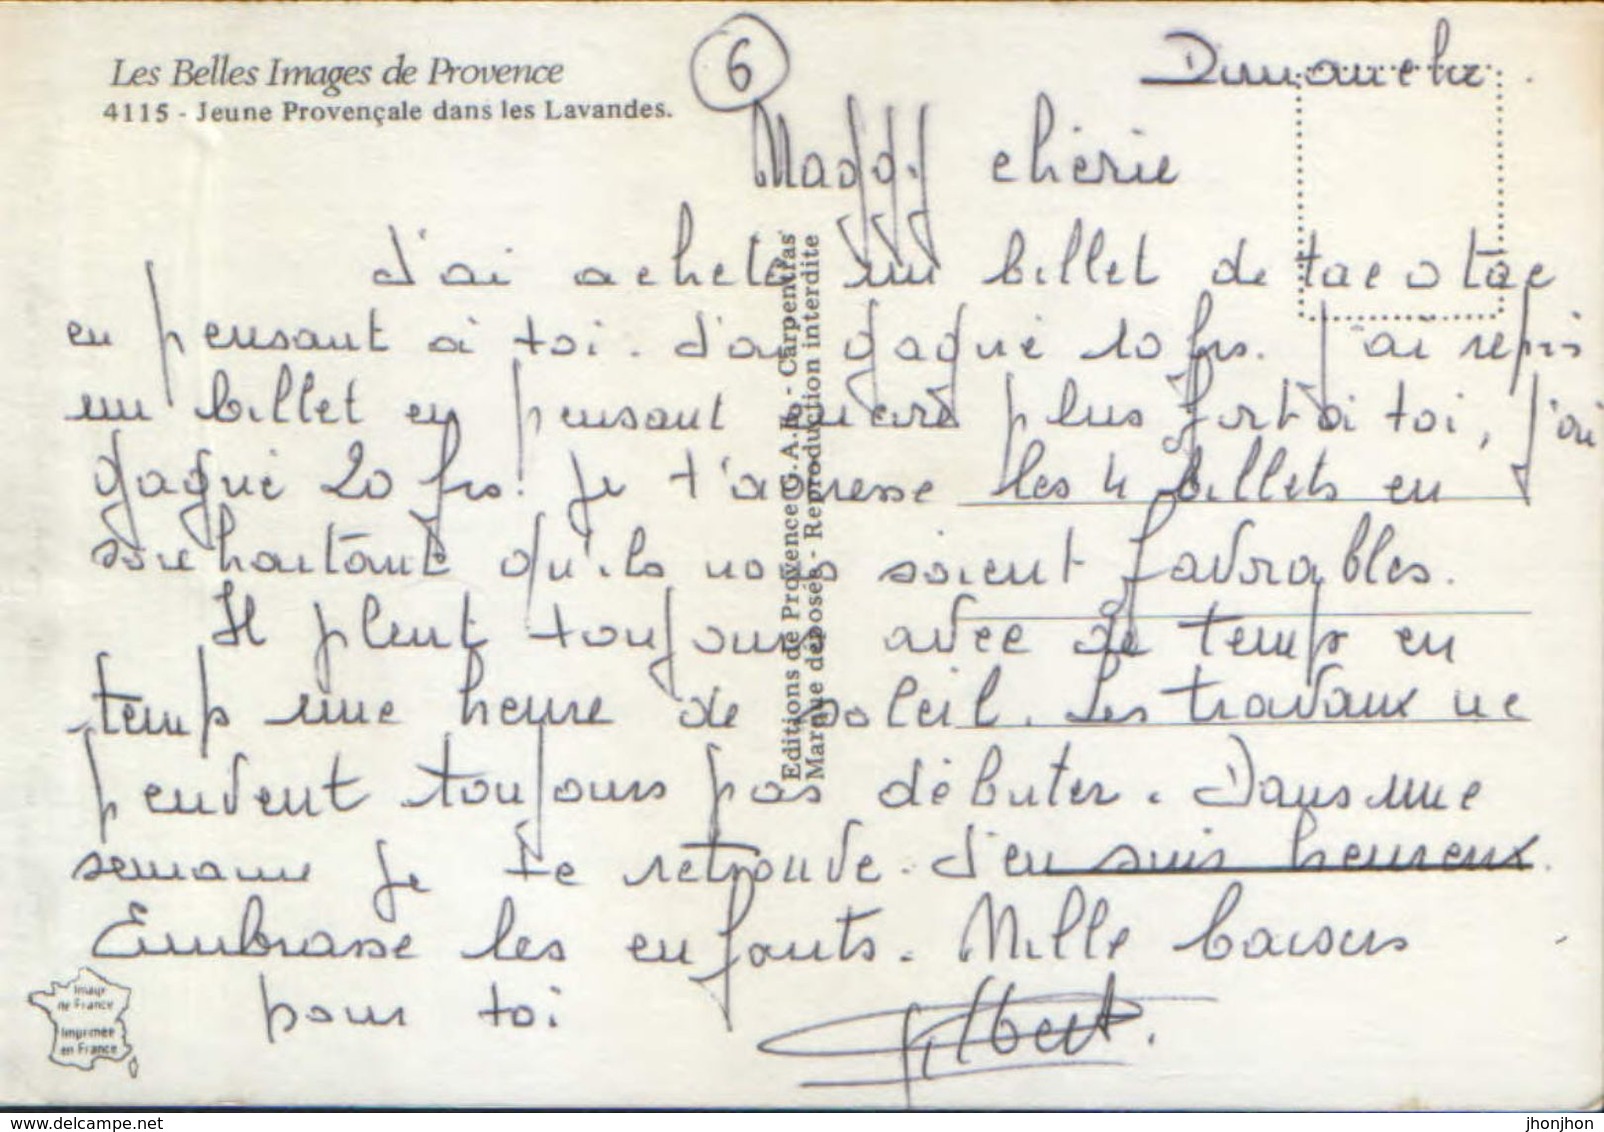 Les Belles Images de Provence
4115 - Jeune Provençale dans les Lavandes.
6
Dimanche.
Maddy chérie
J'ai acheté un billet de tacotac
en pensant à toi. J'ai gagné 10 frs. J'ai repris
un billet en pensant encore plus fort à toi, j'ai
gagné 20 frs! Je t'adresse les 4 billets en
souhaitant qu'ils nous soient favorables.
Il pleut toujours avec de temp en
temp une heure de soleil. Les travaux ne
peuvent toujours pas débuter. Dans une
semaine je te retrouve. J'en suis heureux.
Embrasse les enfants. Mille baisers
pour toi
Gilbert.
Editions de Provence G.A.L. - Carpentras
Marque déposée - Reproduction interdite
Image
de France
Imprimée
en France
www.delcampe.net
jhonjhon